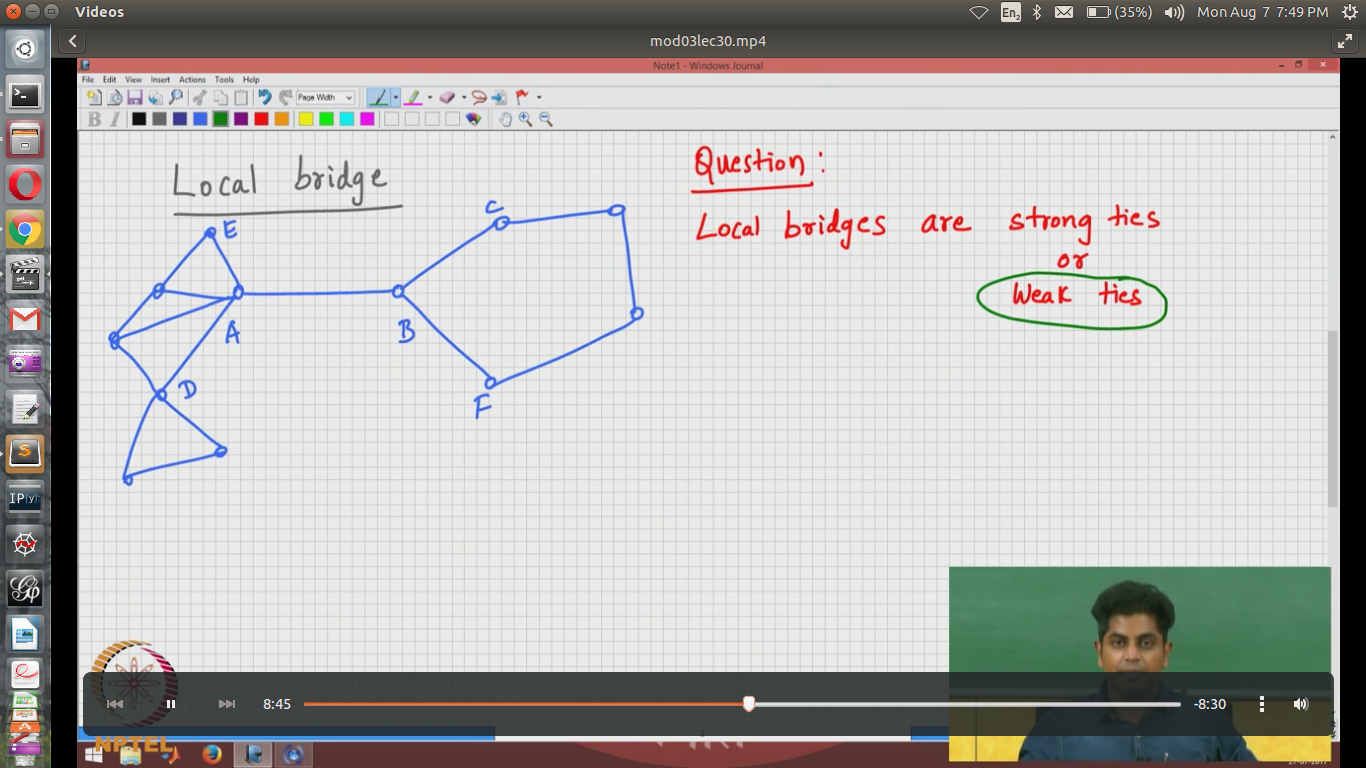 Videos
En2
(35%)
Mon Aug 7 7:49 PM
mod03lec30.mp4
Note1 - Windows Journal
File Edit View Insert Actions Tools Help
Page Width
B I
Local bridge
E
A
D
B
C
F
Question :
Local bridges are strong ties
or
Weak ties
8:45
-8:30
NPTEL
IP[y]:
S